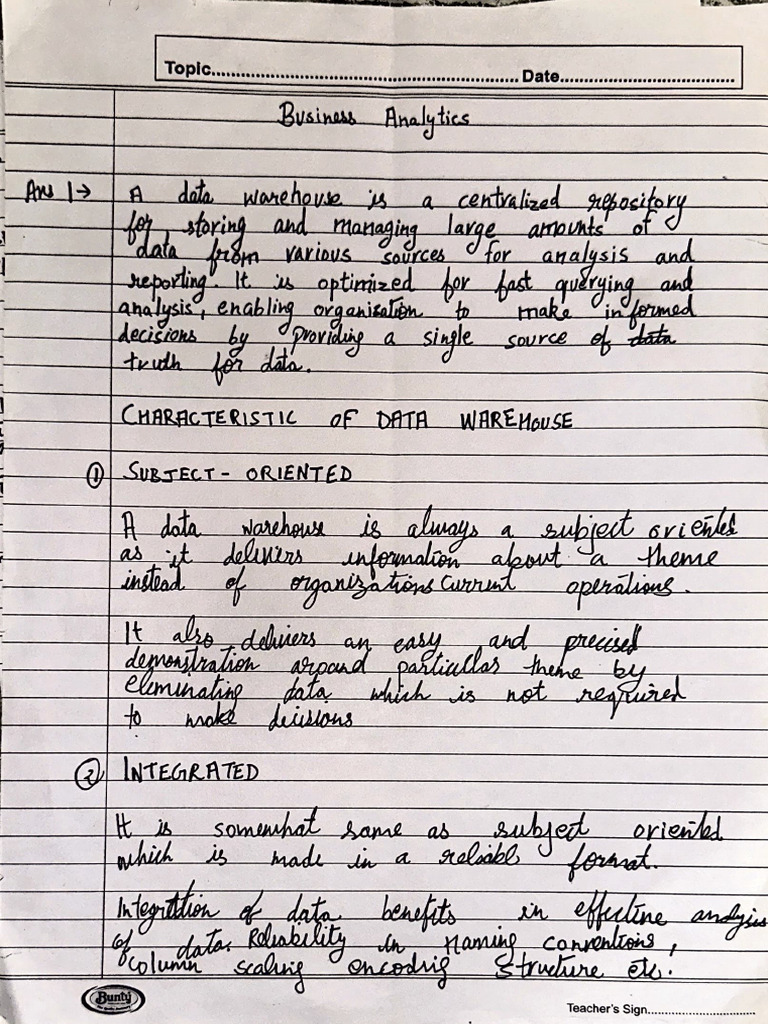 Topic.......................................................................... Date..........................................
Business Analytics
Ans 1→ A data warehouse is a centralized repository
for storing and managing large amounts of
data from various sources for analysis and
reporting. It is optimized for fast querying and
analysis, enabling organisation to make informed
decisions by providing a single source of data
truth for data.
CHARACTERISTIC OF DATA WAREHOUSE
① SUBJECT - ORIENTED
A data warehouse is always a subject oriented
as it delivers information about a theme
instead of organizations current operations.
It also delivers an easy and precised
demonstration around particular theme by
eliminating data which is not required
to make decisions
② INTEGRATED
It is somewhat same as subject oriented
which is made in a reliable format.
Integration of data benefits in effective analysis
of data. Reliability in Naming conventions,
column scaling encoding structure etc.
Bunty
Teacher's Sign..............................